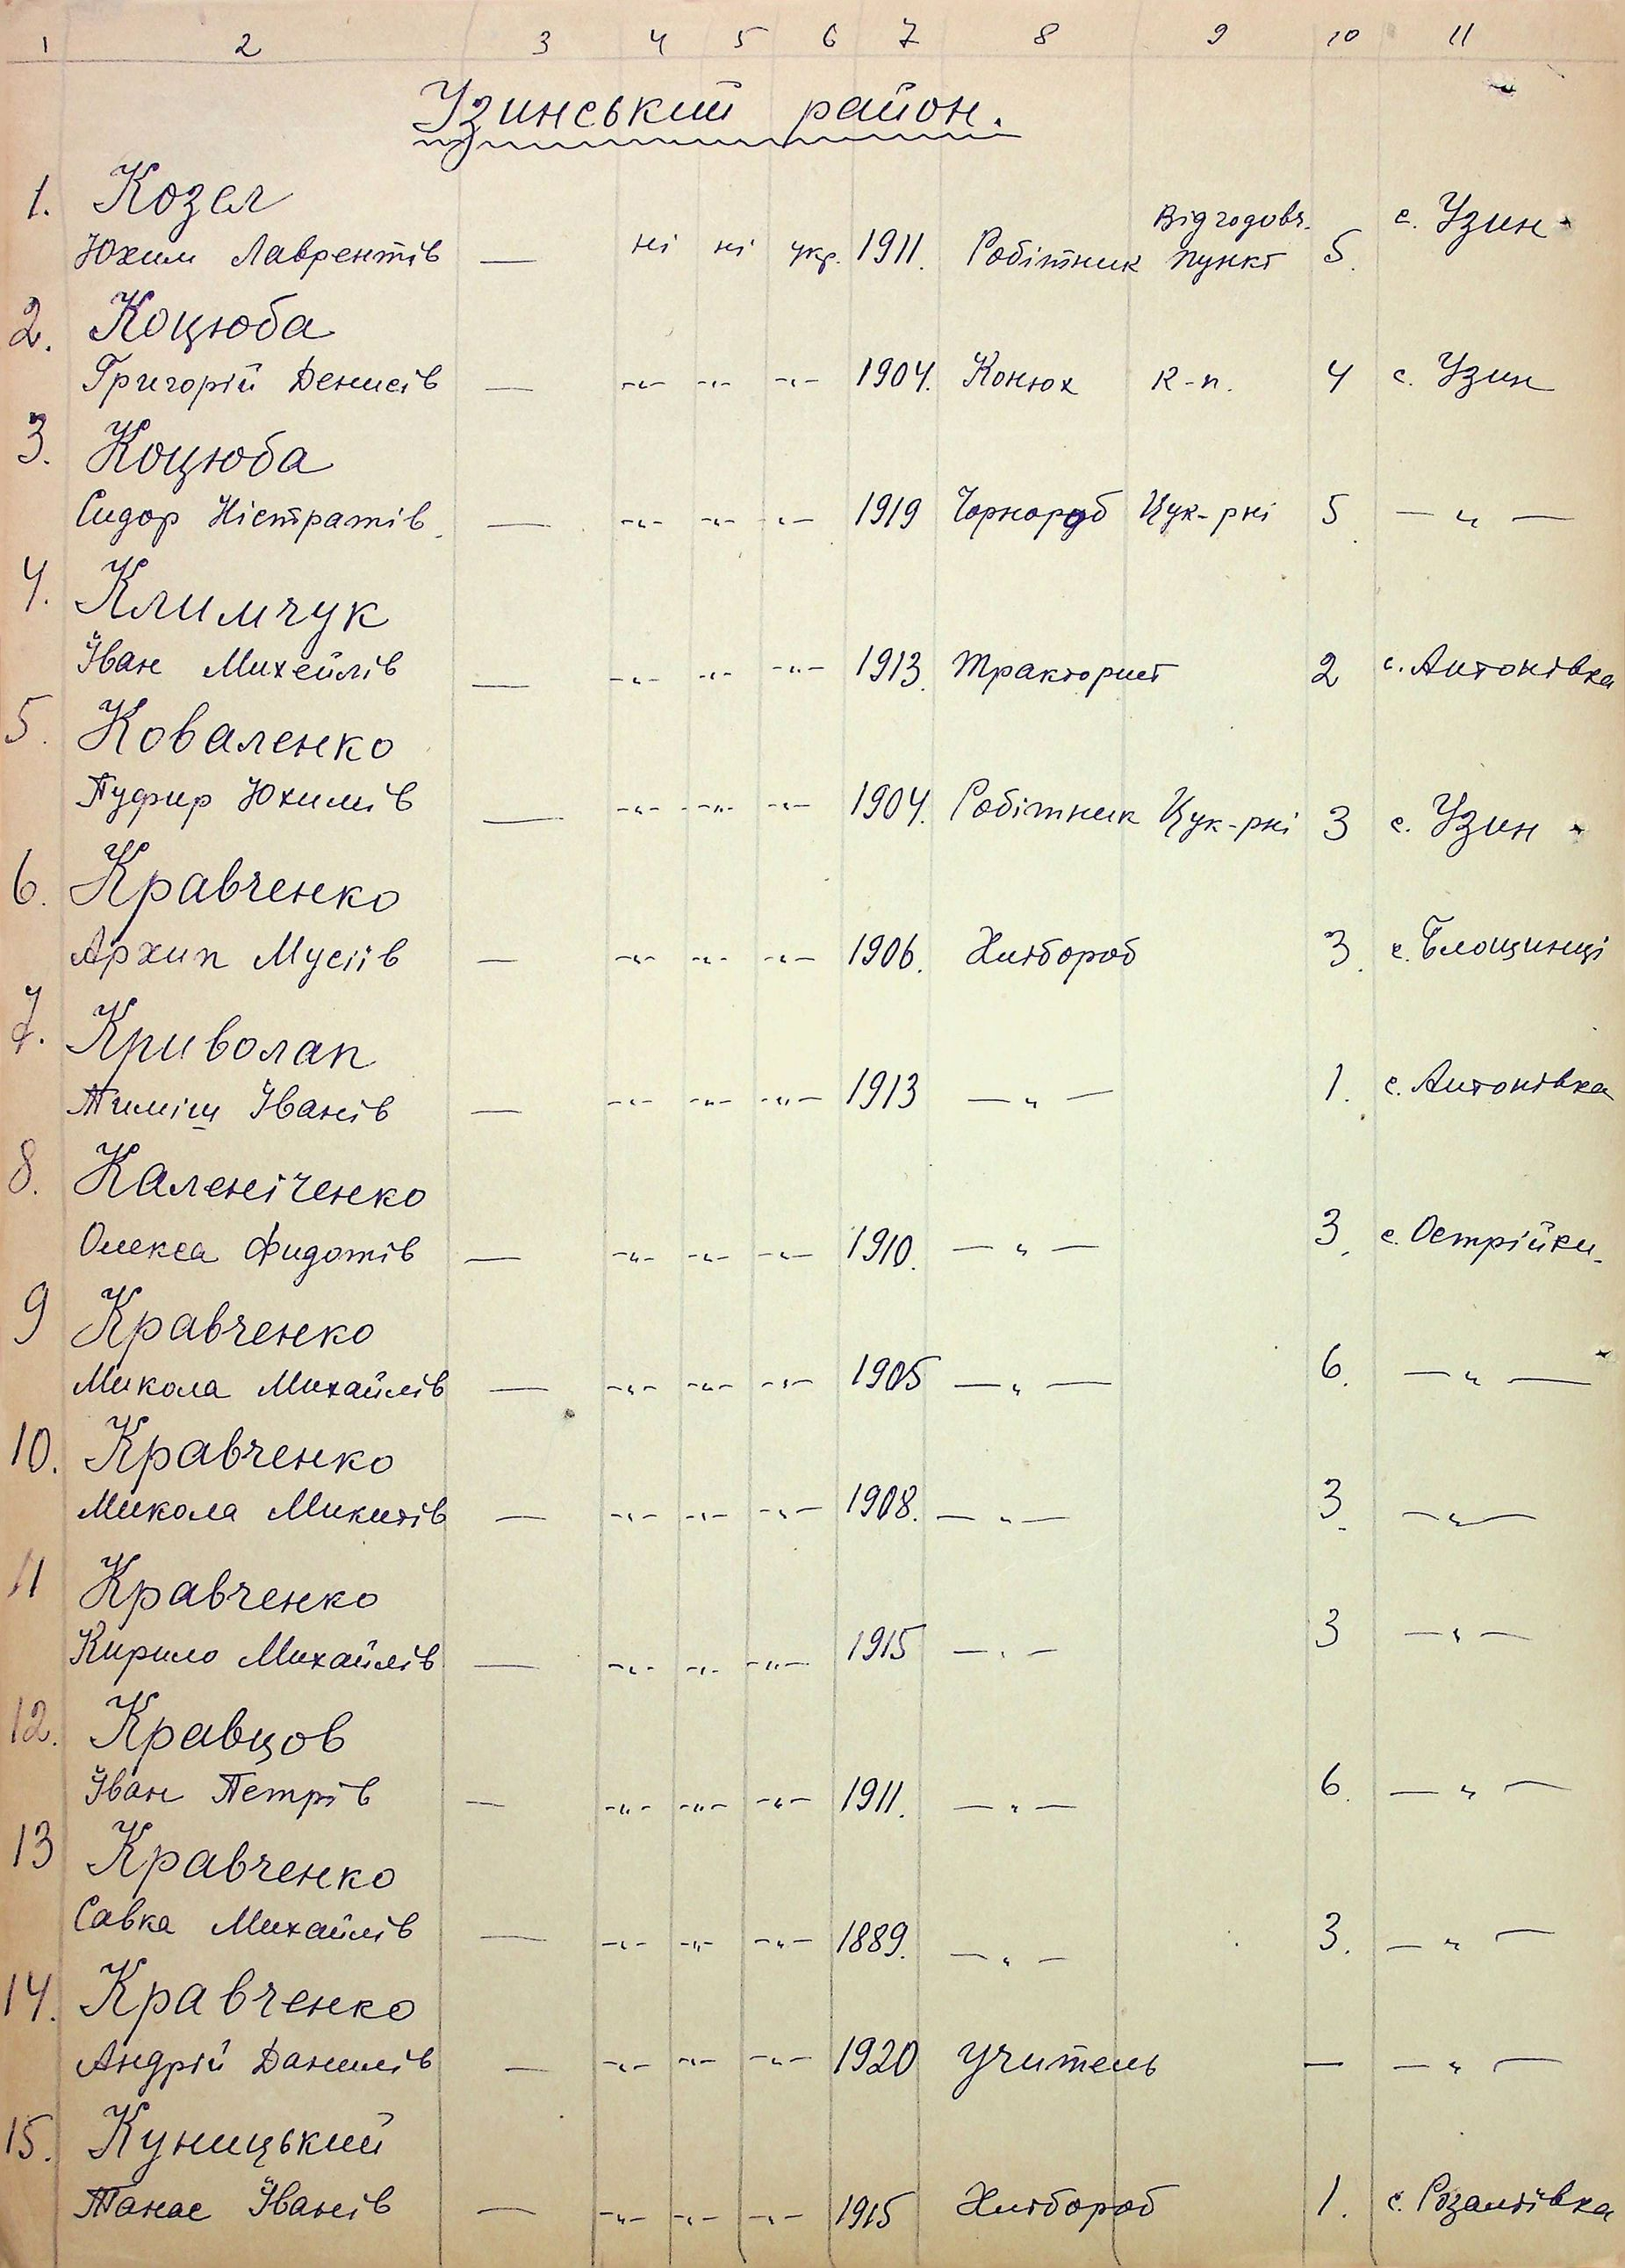 1 2 3 4 5 6 7 8 9 10 11
Узинський район.
1. Козел
Юхим Лаврентів — ні ні укр. 1911. Робітник Відгодовч. пункт 5. с. Узин
2. Коцюба
Григорій Денисів — -"- -"- -"- 1904. Конюх к-п. 4 с. Узин
3. Коцюба
Сидор Ністратів — -"- -"- -"- 1919 Чорнороб Цук-рні 5 — " —
4. Климчук
Іван Михейлів — -"- -"- -"- 1913. Тракторист 2 с. Антонівка
5. Коваленко
Пуфир Юхимів — -"- -"- -"- 1904. Робітник Цук-рні 3 с. Узин
6. Кравченко
Архип Мусіів — -"- -"- -"- 1906. Хлібороб 3. с. Блощинці
7. Криволап
Тиміш Іванів — -"- -"- -"- 1913 — " — 1. с. Антонівка
8. Каленіченко
Олекса Фидотів — -"- -"- -"- 1910. — " — 3. с. Острійки
9 Кравченко
Микола Михайлів — -"- -"- -"- 1905 — " — 6. — " —
10. Кравченко
Микола Микитів — -"- -"- -"- 1908. — " — 3. — " —
11 Кравченко
Кирило Михайлів — -"- -"- -"- 1915 — " — 3 — " —
12. Кравцов
Іван Петрів — -"- -"- -"- 1911. — " — 6. — " —
13 Кравченко
Савка Михайлів — -"- -"- -"- 1889. — " — 3. — " —
14. Кравченко
Андрій Данилів — -"- -"- -"- 1920 учитель — — " —
15. Куницький
Танас Іванів — -"- -"- -"- 1915 Хлібороб 1. с. Розаліівка